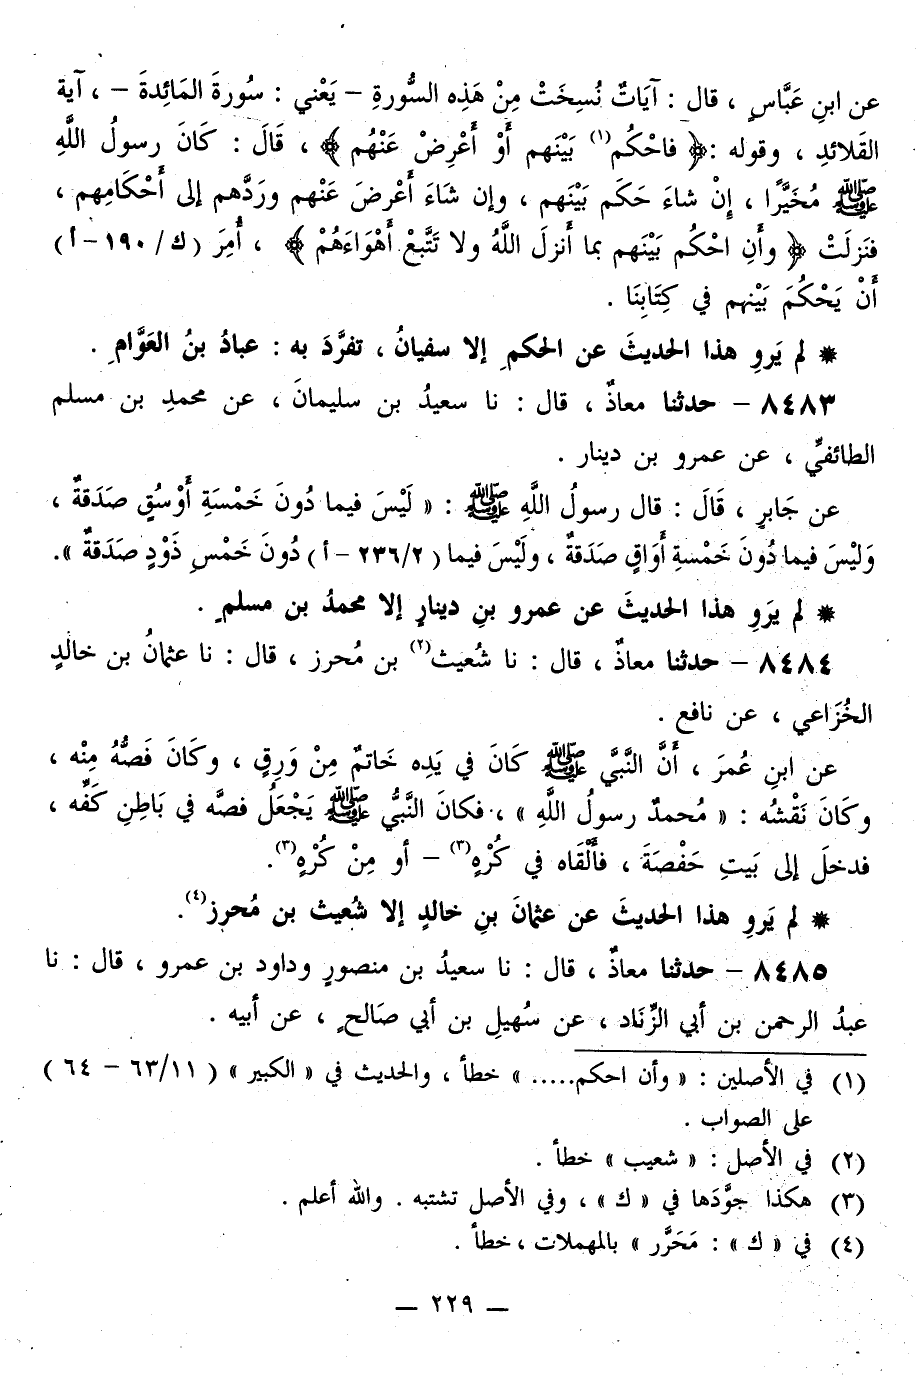 عن ابنِ عَبَّاسٍ ، قال : آيَاتٌ نُسِخَتْ مِنْ هَذِه السُّورةِ – يَعْني : سُورةَ المَائِدةَ – ، آية
القَلائدِ ، وقوله :﴿ فاحْكُم(١) بَيْنَهم أَوْ أَعْرِضْ عَنْهُم ﴾ ، قَالَ : كَانَ رسولُ اللَّهِ
ﷺ مُخَيَّرًا ، إِنْ شاءَ حَكَم بَيْنَهم ، وإن شَاءَ أَعْرضَ عَنْهم وردَّهم إلى أَحْكامِهم ،
فنَزلَتْ ﴿ وأَنِ احْكُم بَيْنَهم بما أَنزلَ اللَّهُ ولا تَتَّبعْ أَهْوَاءَهُمْ ﴾ ، أُمِرَ ( ك/ ١٩٠ – أ )
أَنْ يَحْكُمَ بَيْنهم في كِتَابِنَا .
* لم يَروِ هذا الحديثَ عن الحكمِ إلا سفيانُ ، تفرَّدَ به : عبادُ بنُ العَوَّامِ .
٨٤٨٣ – حدثنا معاذٌ ، قال : نا سعيدُ بن سليمانَ ، عن محمدِ بن مسلم
الطائفيِّ ، عن عمرو بن دينار .
عن جَابرٍ ، قَالَ : قال رسولُ اللَّهِ ﷺ : « لَيْسَ فيما دُونَ خَمْسَةِ أَوْسُقٍ صَدَقةٌ ،
وَليْسَ فيما دُونَ خَمْسةِ أَوَاقٍ صَدَقةٌ ، ولَيْسَ فيما ( ٢٣٦/٢ – أ ) دُونَ خَمْسِ ذَوْدٍ صَدَقةٌ ».
* لم يرَوِ هذا الحديثَ عن عمرو بنِ دينارٍ إلا محمدُ بن مسلمٍ .
٨٤٨٤ – حدثنا معاذٌ ، قال : نا شُعيث(٢) بن مُحرز ، قال : نا عثمانُ بن خالدٍ
الخُزَاعي ، عن نافع .
عن ابنِ عُمرَ ، أَنَّ النَّبيَّ ﷺ كَانَ في يَدِه خَاتمٌ مِنْ وَرِقٍ ، وكَانَ فَصُّهُ مِنْه ،
وكَانَ نَقْشُه : « مُحمدٌ رسولُ اللَّهِ » ، فكانَ النَّبيُّ ﷺ يَجْعَلُ فصَّه في بَاطِنِ كَفِّه ،
فدخلَ إلى بَيتِ حَفْصَةَ ، فأَلْقَاه في كُرْهٍ(٣) – أو مِنْ كُرْهٍ(٣).
* لم يَروِ هذا الحديثَ عن عثمانَ بنِ خالدٍ إلا شُعيث بن مُحرز(٤).
٨٤٨٥ – حدثنا معاذٌ ، قال : نا سعيدُ بن منصورٍ وداود بن عمرو ، قال : نا
عبدُ الرحمن بن أبي الزِّنَاد ، عن سُهيلِ بن أبي صَالحٍ ، عن أبيه .
(١) في الأصلين : « وأن احكم..... » خطأ ، والحديث في « الكبير » ( ٦٣/١١ – ٦٤ )
على الصواب .
(٢) في الأصل : « شعيب » خطأ .
(٣) هكذا جوَّدَها في « ك » ، وفي الأصل تشتبه . والله أعلم .
(٤) في « ك » : مَحَرَّر » بالمهملات ، خطأ .
— ٢٢٩ —